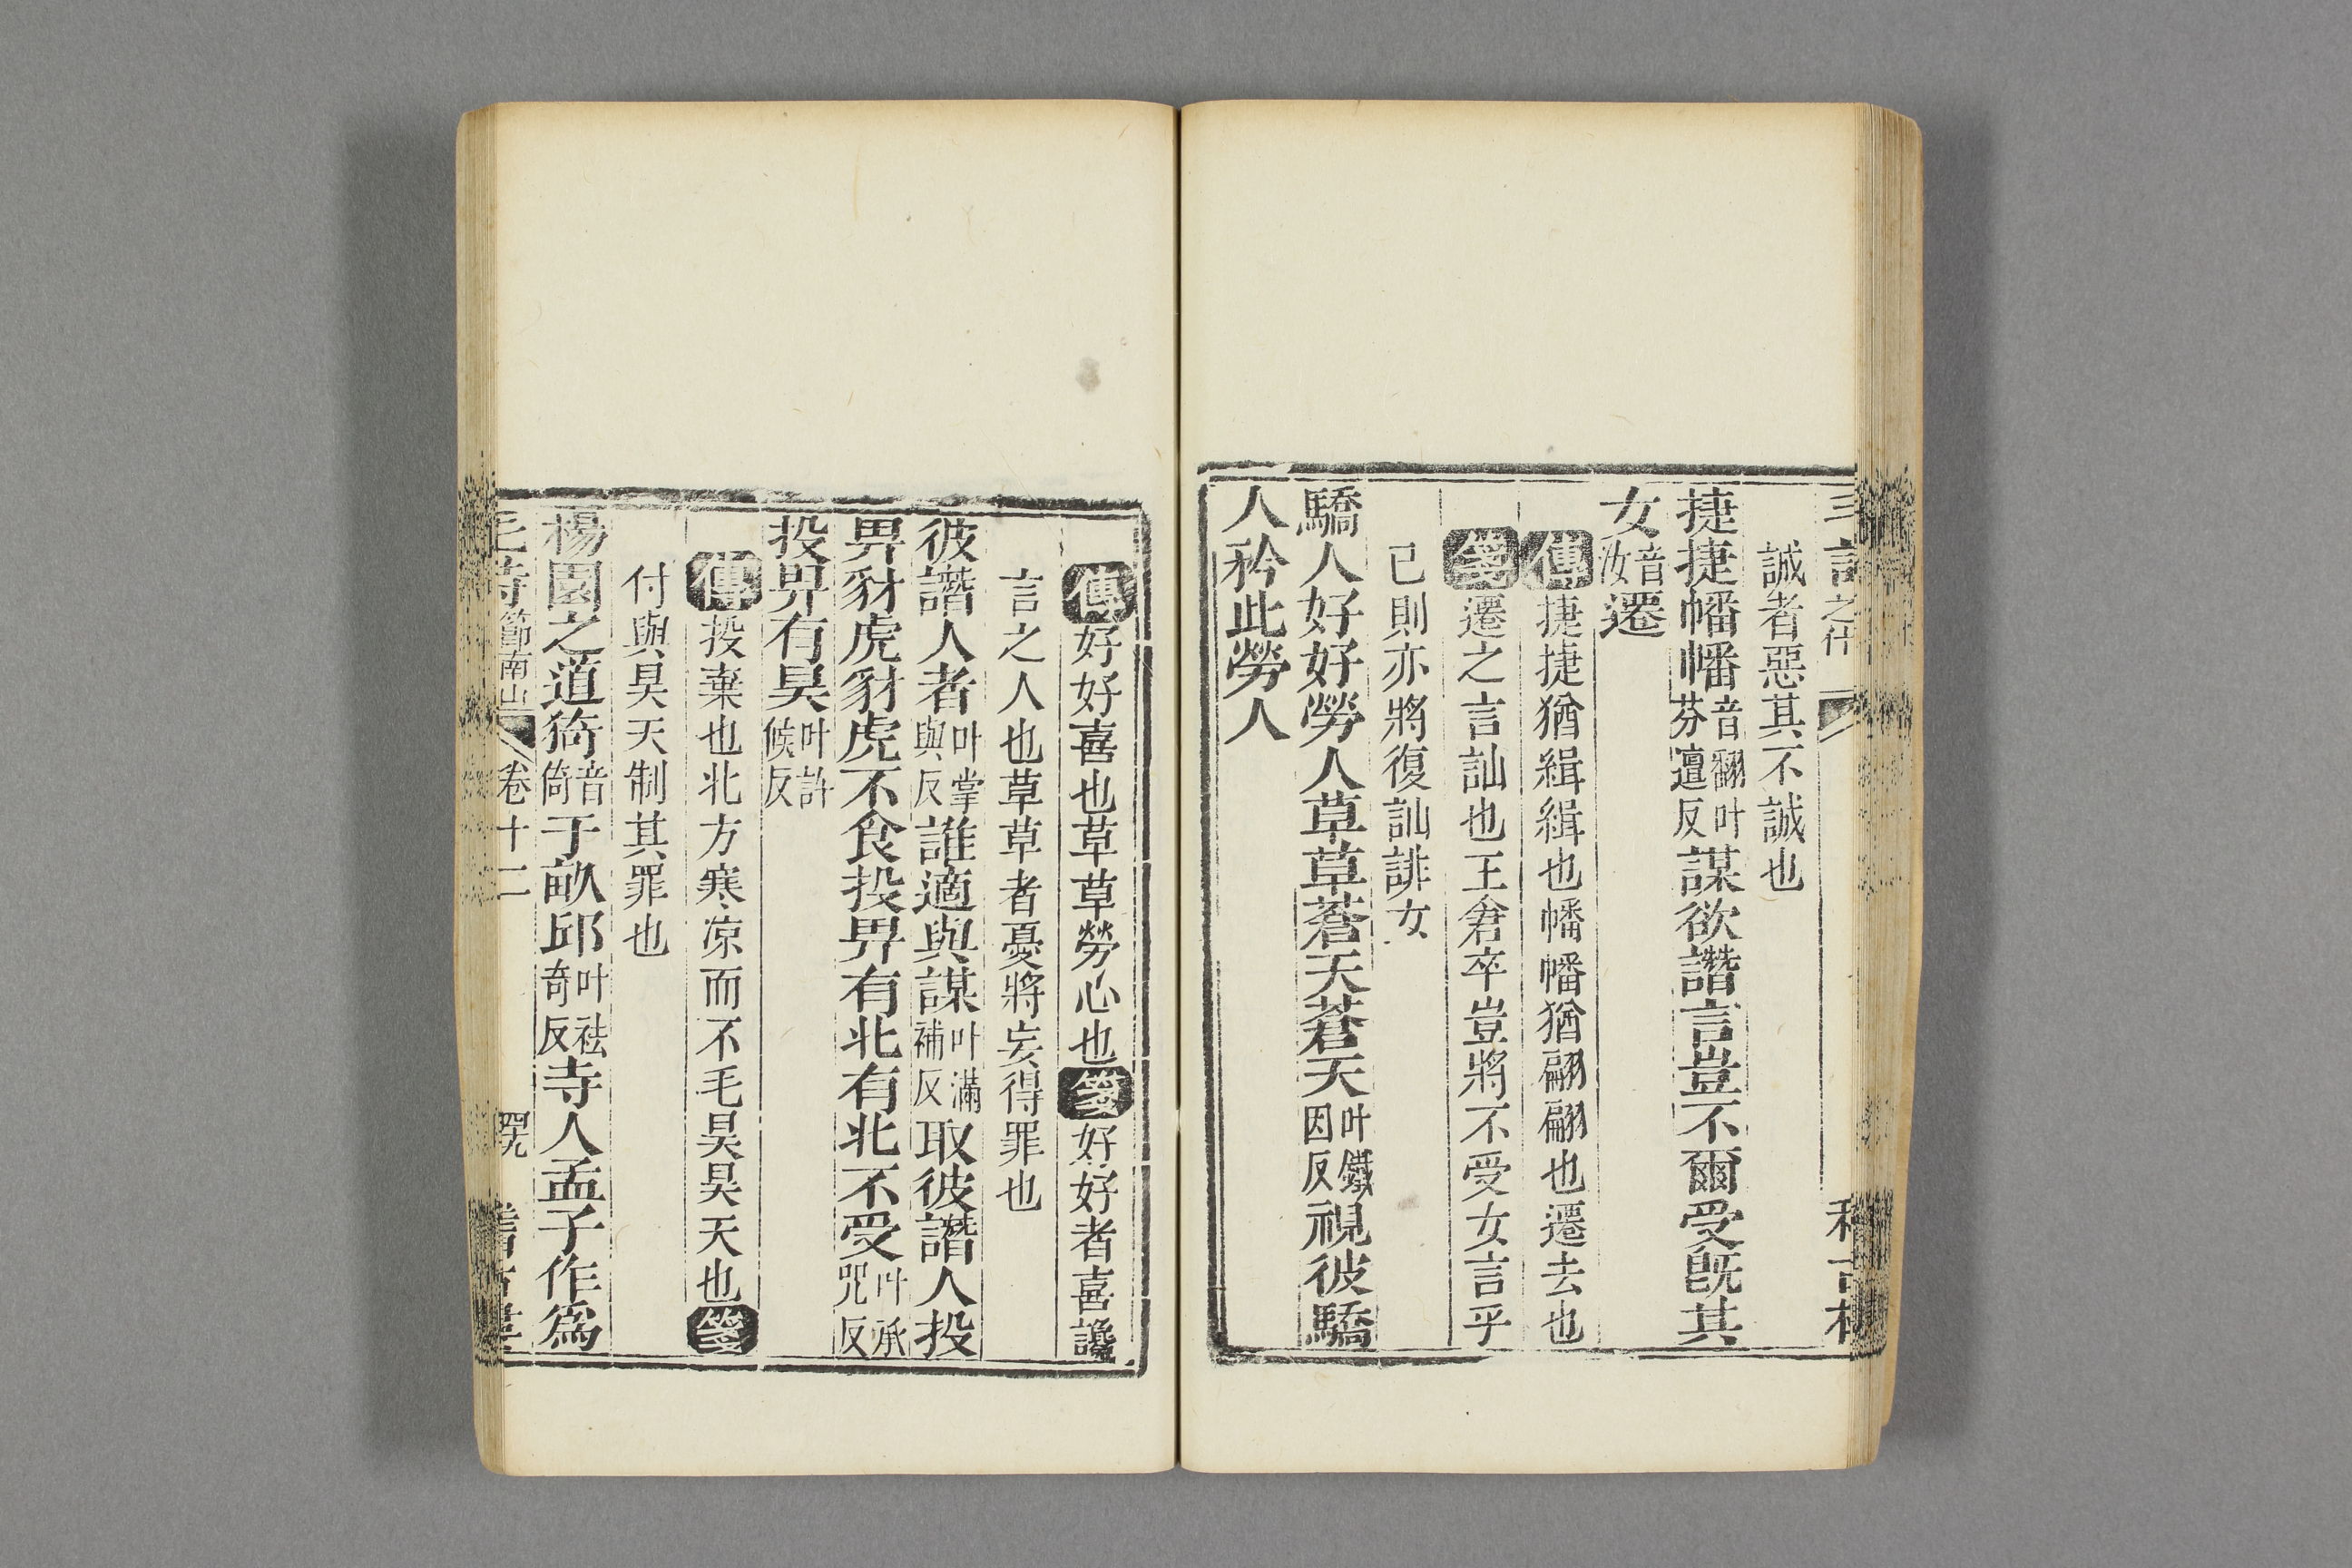 誠者惡其不誠也
捷捷幡幡音翻叶芬邅反謀欲譖言豈不爾受既其
女音汝遷
傳捷捷猶緝緝也幡幡猶翩翩也遷去也
箋遷之言訕也王倉卒豈將不受女言乎
已則亦將復訕誹女
驕人好好勞人草草蒼天蒼天叶鐵因反視彼驕
人矜此勞人
傳好好喜也草草勞心也箋好好者喜讒
言之人也草草者憂將妄得罪也
彼譖人者叶掌與反誰適與謀叶滿補反取彼譖人投
畀豺虎豺虎不食投畀有北有北不受叶承呪反
投畀有昊叶許候反
傳投棄也北方寒凉而不毛昊昊天也箋
付與昊天制其罪也
楊園之道猗音倚于畝邱叶祛奇反寺人孟子作爲
毛詩節南山 卷十二